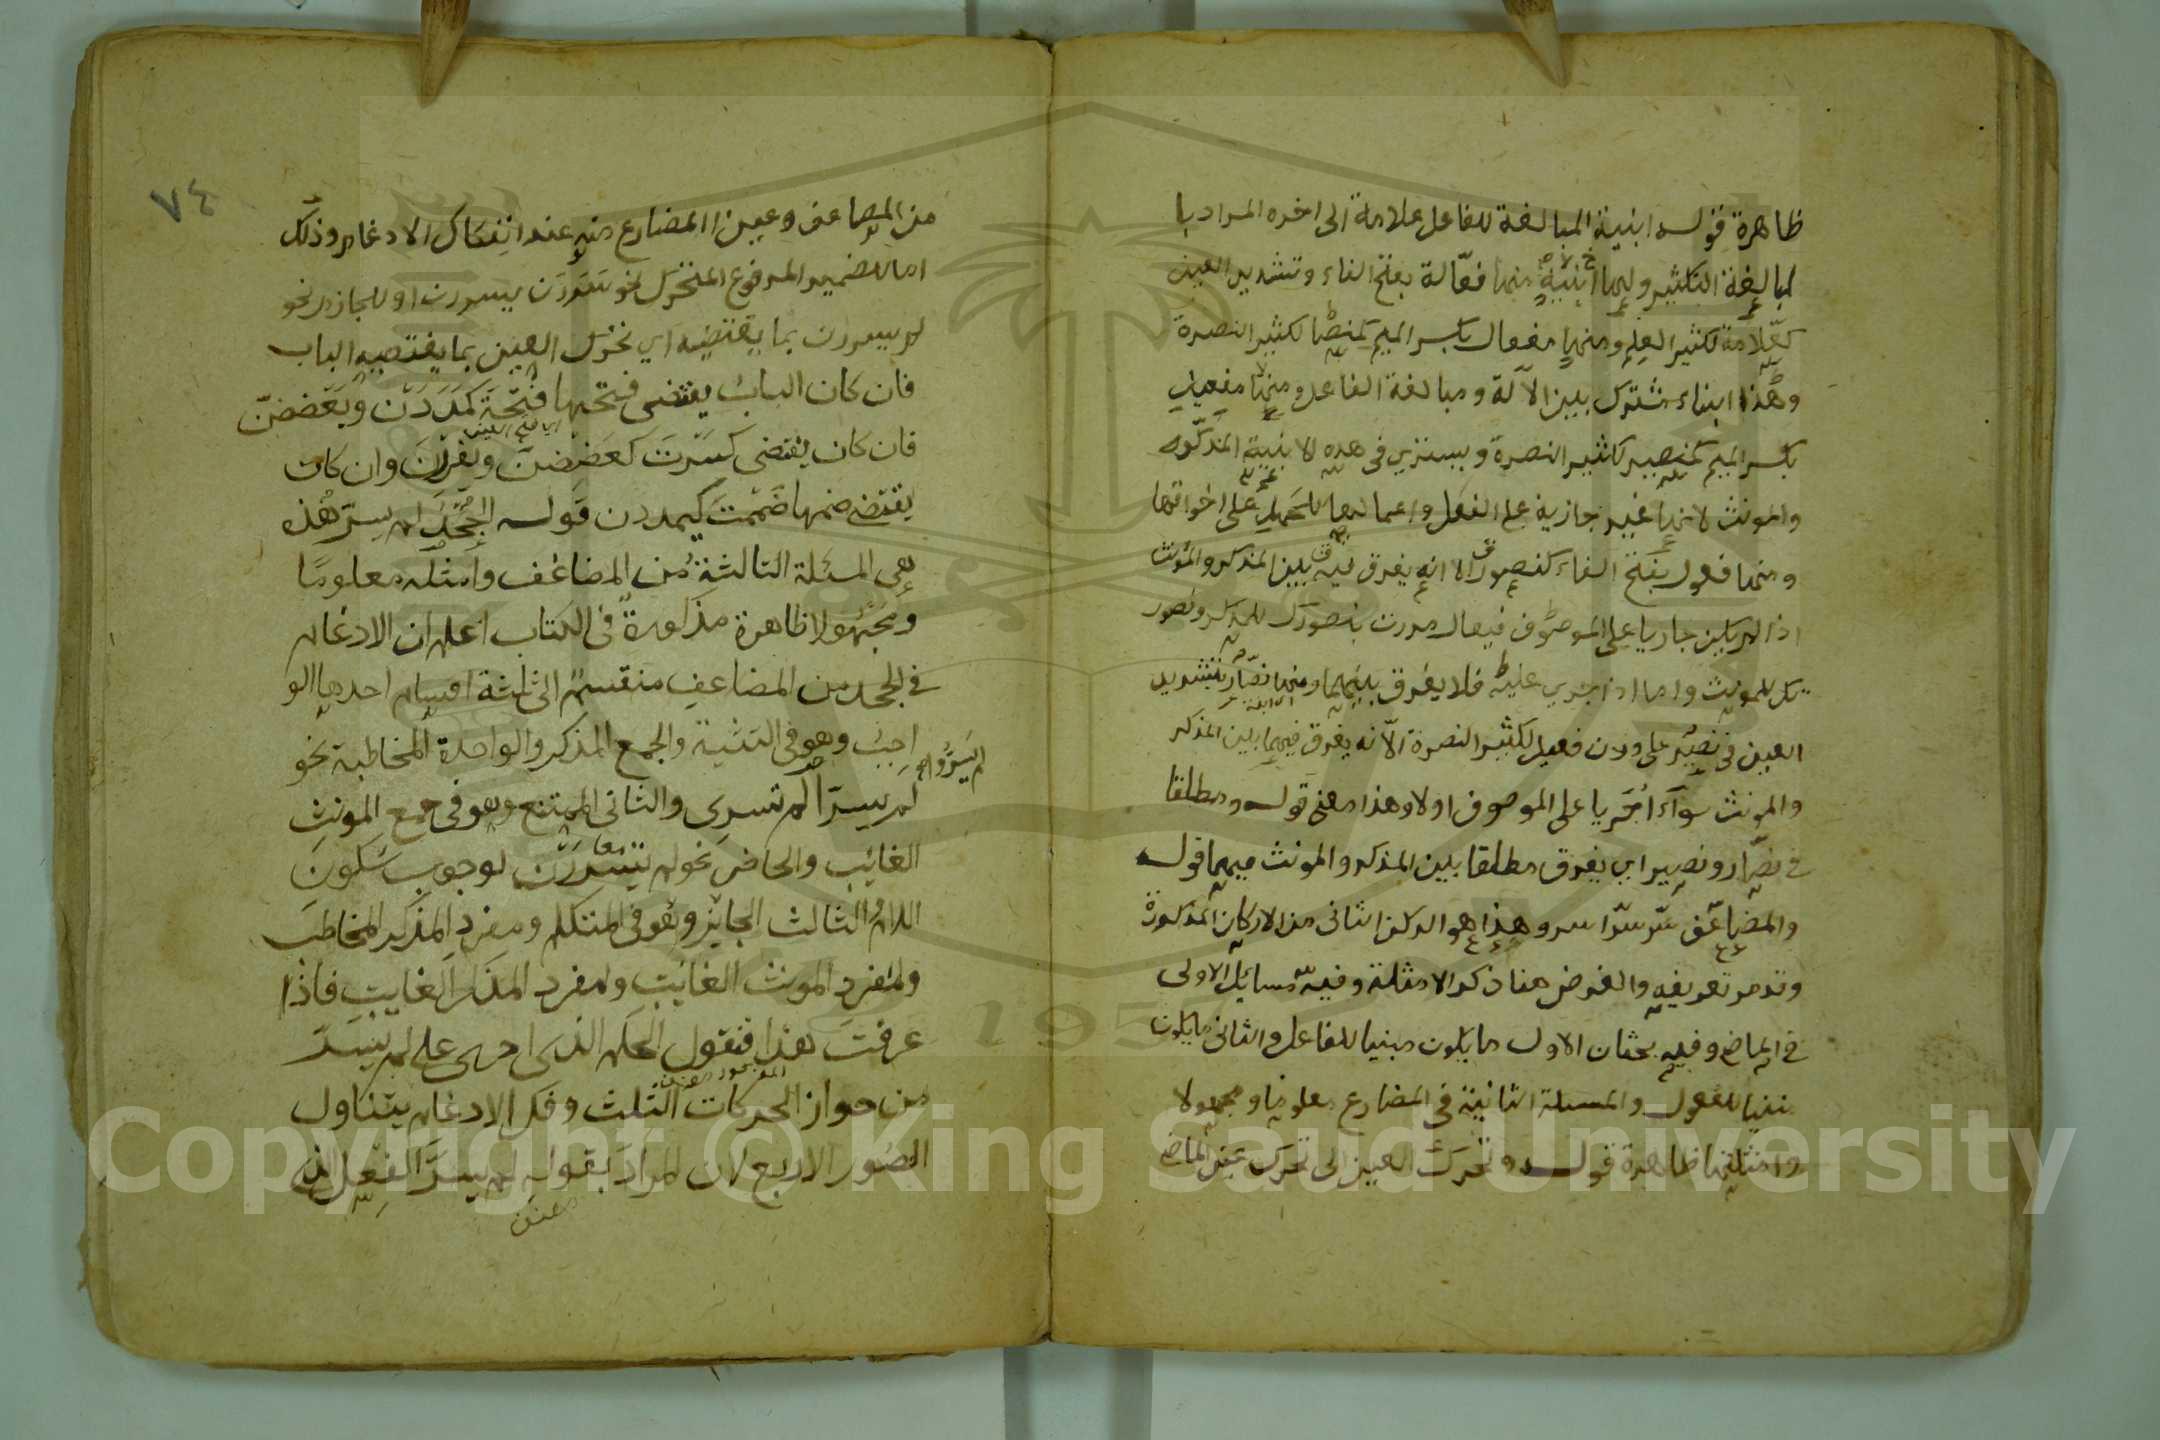 ظاهرة قوله ابنية المبالغة للفاعل علامة الى اخره المراد با
لمبالغة التكثير ولها ابنية منها فعّالة بفتح الفاء وتشديد العين
كعلّامة لكثير العلم ومنها مفعال بكسر الميم لكثير النصرة
وهذا البناء مشترك بين الآلة ومبالغة الفاعل ومنها مفعيل
بكسر الميم كمنصير لكثير النصرة ويستوي في هذه الابنية المذكر
والمونث لانها غير جارية على الفعل على اخواتها
ومنها فعول بفتح الفاء كنصور الا انه يفرق فيه بين المذكر والمؤنث
اذا لم يكن جاريا على الموصوف فيقال مررت بنصورك للمذكر ونصور
تك للمونث واما اذا جرى عليه فلا يفرق بينهما ومنها نصّار بتشديد
العين نصير على وزن فعيل لكثير النصرة الّا انه يفرق فيهما بين المذكر
والمونث سوآء اجريا على الموصوف اولا وهذا معنى قوله ومطلقا
في نصّار ونصير اي يفرق مطلقا بين المذكر والمونث فيهما قوله
والمضاعف سرّ سرّا سرو هذا هو الركن الثانى من الاركان المذكورة
وقد مر تعريفه والغرض هنا ذكر الامثلة وفيه مسايل الاولى
في الماضي وفيه بحثان الاول ما يكون مبنيا للفاعل والثانى ما يكون
مبنيا للمفعول والمسئلة الثانية في المضارع معلوما ومجهولا
وامثلتها ظاهرة قوله وتحرك العين اى تحرك عين الماضي
٧٤
من المضاعف وعين المضارع منه عند انفكاك الادغام وذلك
اما للضمير المرفوع المتحرك نحو سررن يسررن او للجازم نحو
لم يسررن بما يقتضيه اي تحرك العين بما يقتضيه الباب
فان كان الباب يقتضى فتحها فتحة كمددن ويعضضن
اي في العين
فان كان يقتضى كسرت كعضضن ويفررن وان كان
يقتضي ضمها ضممت كيمددن قوله الجحد لم يسرّ هذه
هى المسئلة الثالثة من المضاعف وامثله معلومًا
ومجهولا ظاهرة مذكورة فى الكتاب اعلم ان الادغام
في الجحد من المضاعف منقسم الى ثلثة اقسام احدها الو
اجب وهو فى التثنية والجمع المذكر والواحدة المخاطبة نحو
لم يسرّوا
لم يسرّا لم تسرى والثانى الممتنع وهو فى جمع المونث
الغائب والحاضر نحو لم يسررن لوجوب سكون
اللام الثالث الجايز وهو فى المتكلم ومفرد المذكر المخاطب
ومفرد المونث الغائب ومفرد المذكر الغايب فاذا
عرفت هذا فنقول الحكم الذى اجرى على لم يسرّ
من جواز الحركات الثلث وفك الادغام يتناول
الصور الاربع لان المراد بقوله لم يسرّ الفعل الذي
Copyright © King Saud University
1957